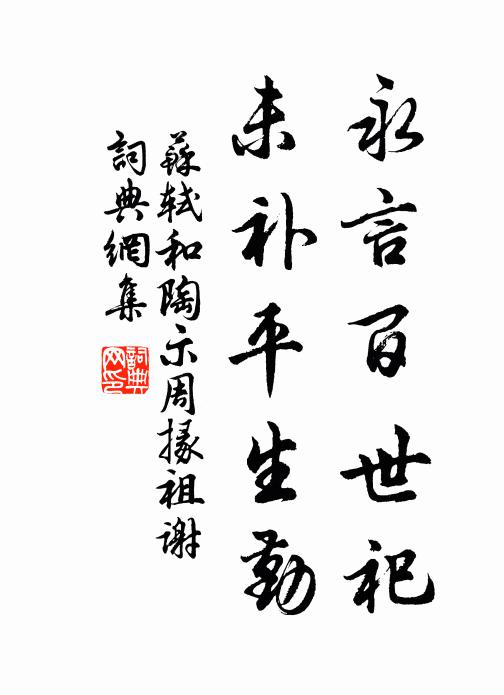 永言百世祀
未补平生勤
蘇軾和陶示周掾祖谢
詞典網集
詞典网印